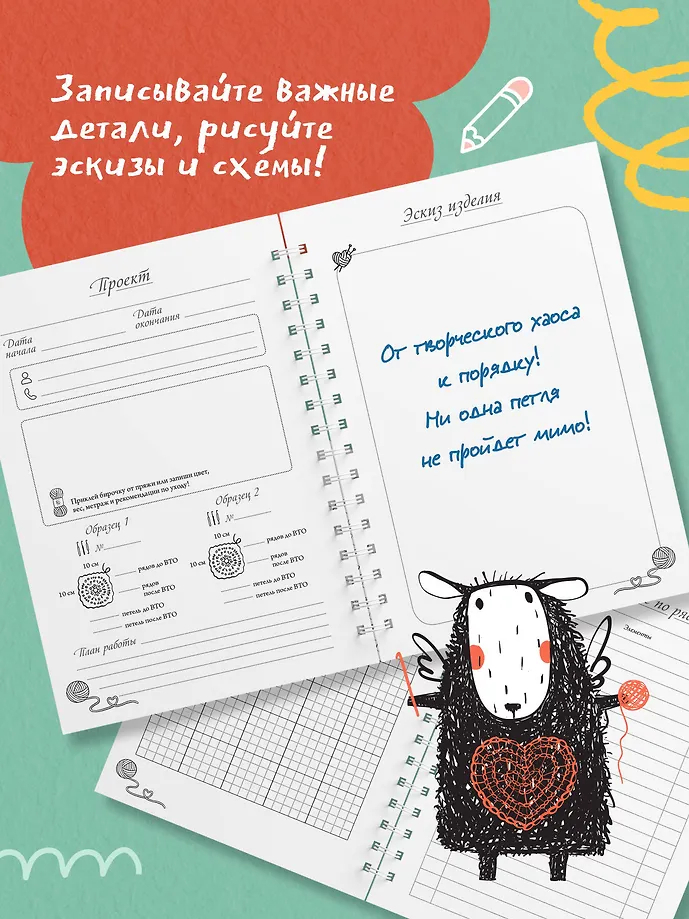 Записывайте важные
детали, рисуйте
эскизы и схемы!
Проект
Дата
начала
Дата
окончания
Приклей бирочку от пряжи или запиши цвет,
вес, метраж и рекомендации по уходу!
Образец 1
№
10 см
10 см
рядов до ВТО
рядов
после ВТО
петель до ВТО
петель после ВТО
Образец 2
№
10 см
10 см
рядов до ВТО
рядов
после ВТО
петель до ВТО
петель после ВТО
План работы
Эскиз изделия
От творческого хаоса
к порядку!
Ни одна петля
не пройдет мимо!
по ря